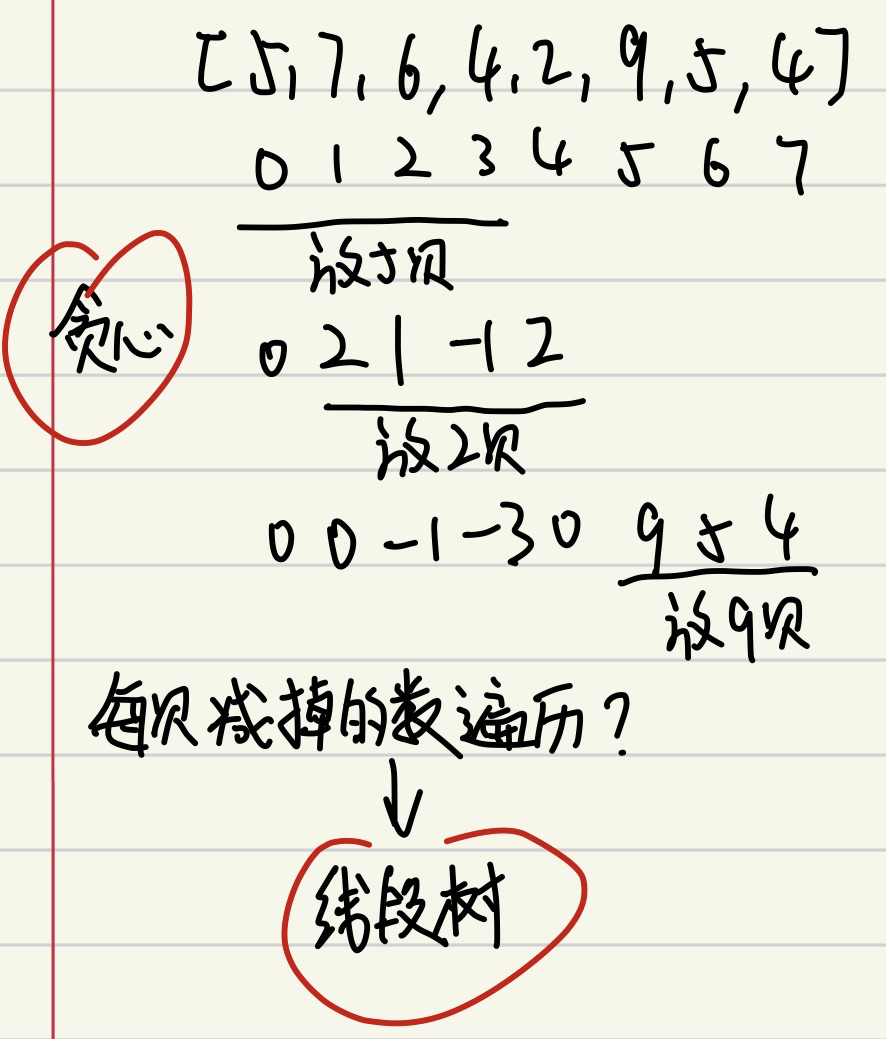 [5, 7, 6, 4, 2, 9, 5, 4]
0 1 2 3 4 5 6 7
放5顶
贪心
0 2 1 -1 2
放2顶
0 0 -1 -3 0 9 5 4
放9顶
每次减掉的数遍历?
↓
线段树